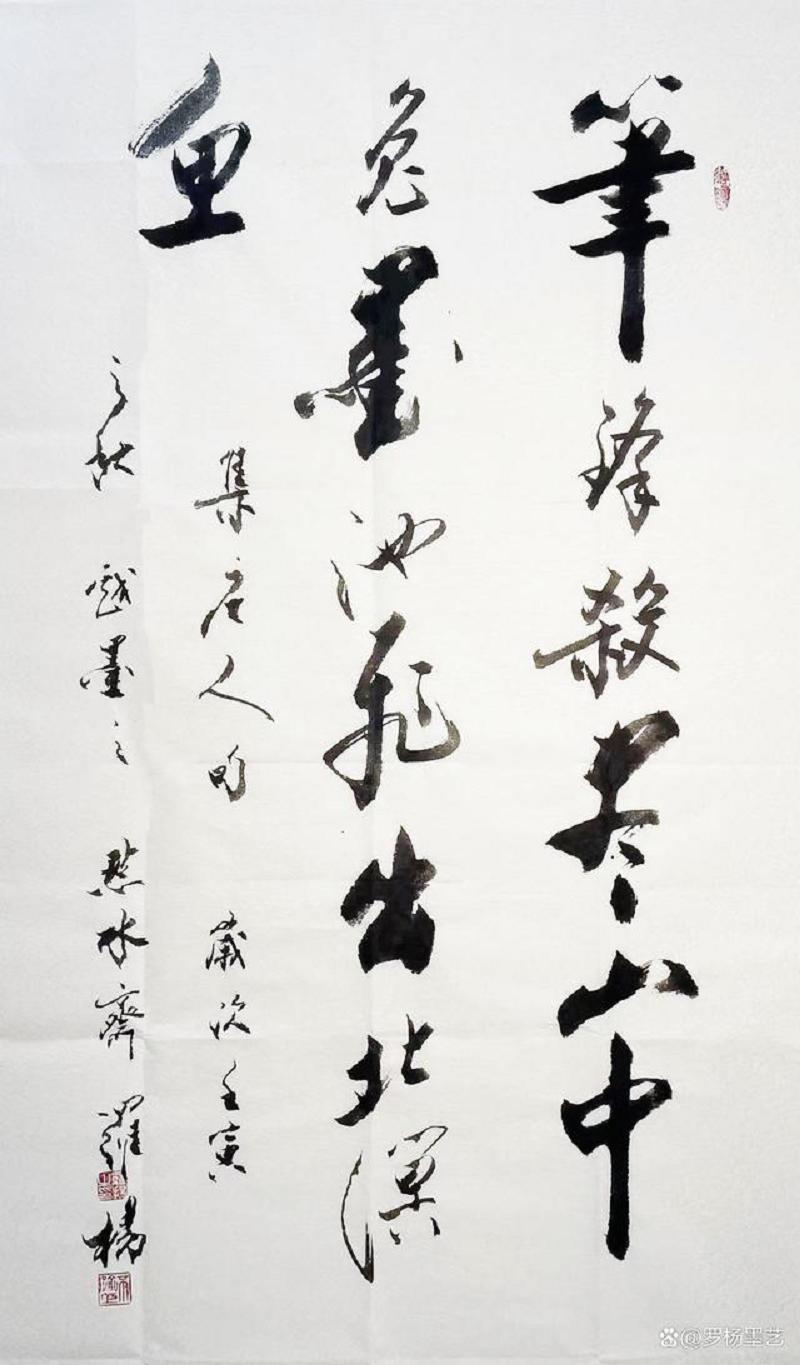 筆鋒殺尽山中
兔墨池飛出北溟
鱼
集唐人句 歲次壬寅
之秋 戲墨之 水齋 羅楊
@罗杨墨艺